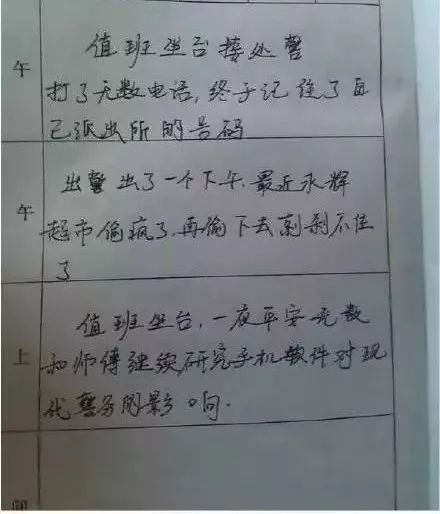 午
值班坐台接处警
打了无数电话,终于记住了自
己派出所的号码
午
出警出了一个下午.最近永辉
超市偷疯了.再偷下去刹不住
了
上
值班坐台,一夜平安无数
和师傅继续研究手机软件对现
代警务的影响.
间